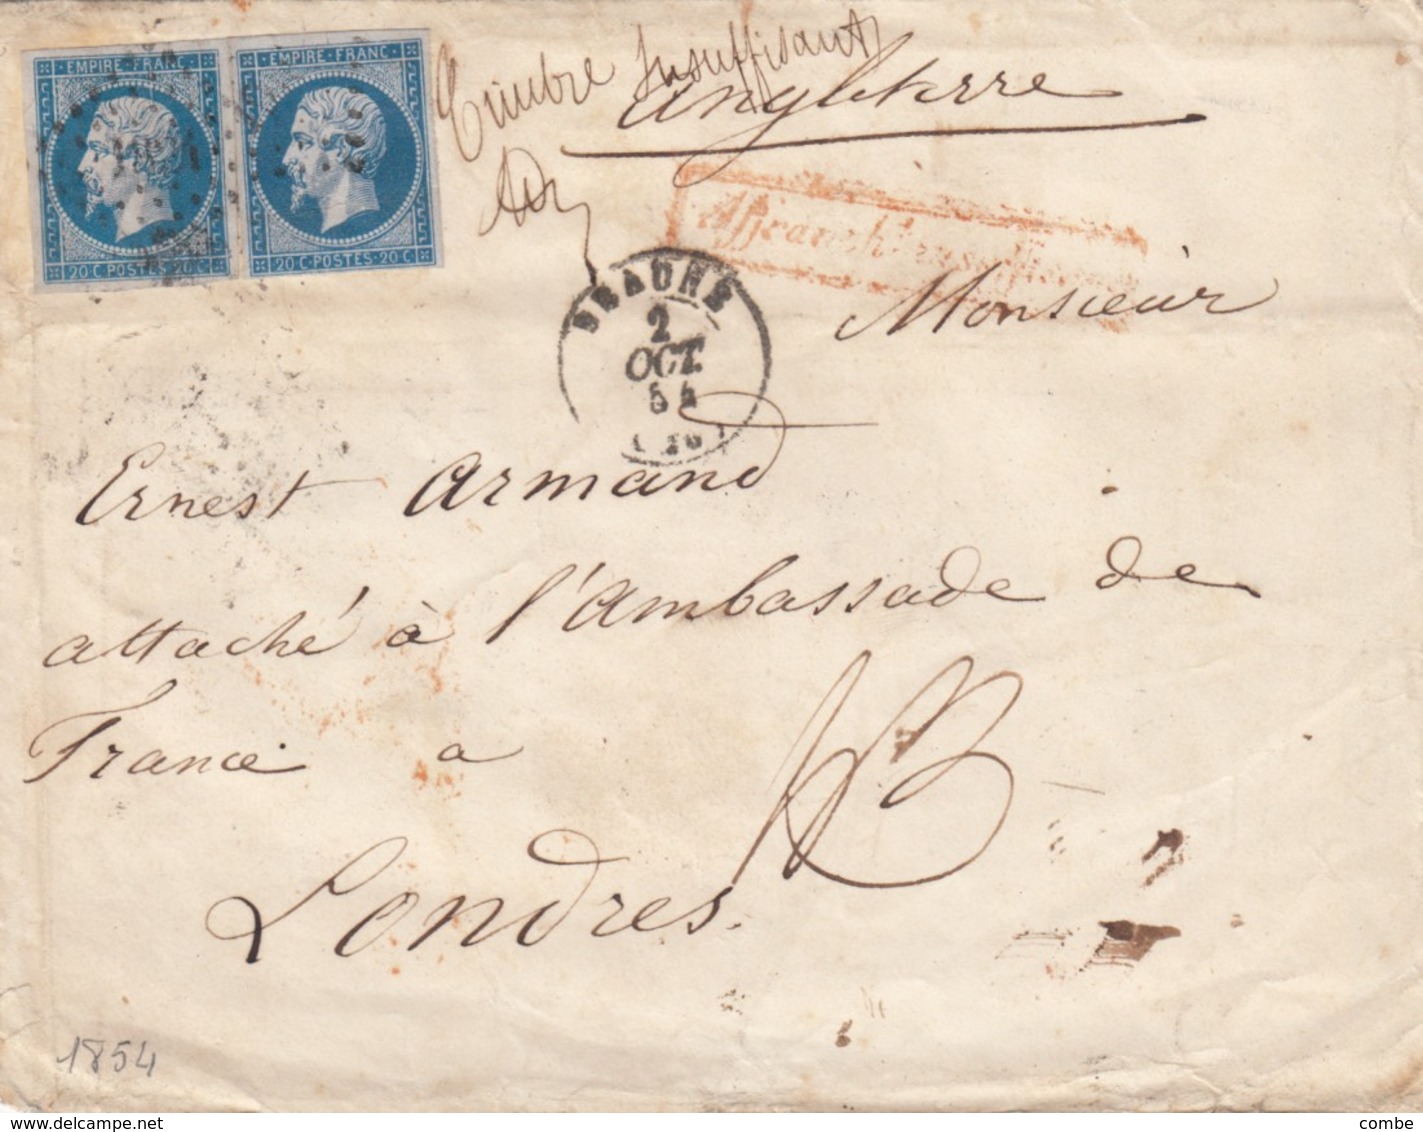 EMPIRE·FRANC· EMPIRE·FRANC·
20·C·POSTES·20·C· 20·C·POSTES·20·C·
Timbre Insuffisant
Angleterre
Affranch! insuffisan
BEAUNE
2
OCT.
54
(20)
Monsieur
Ernest Armand
attaché à l'Ambassade de
France a
Londres.
1854
delcampe.net
combe